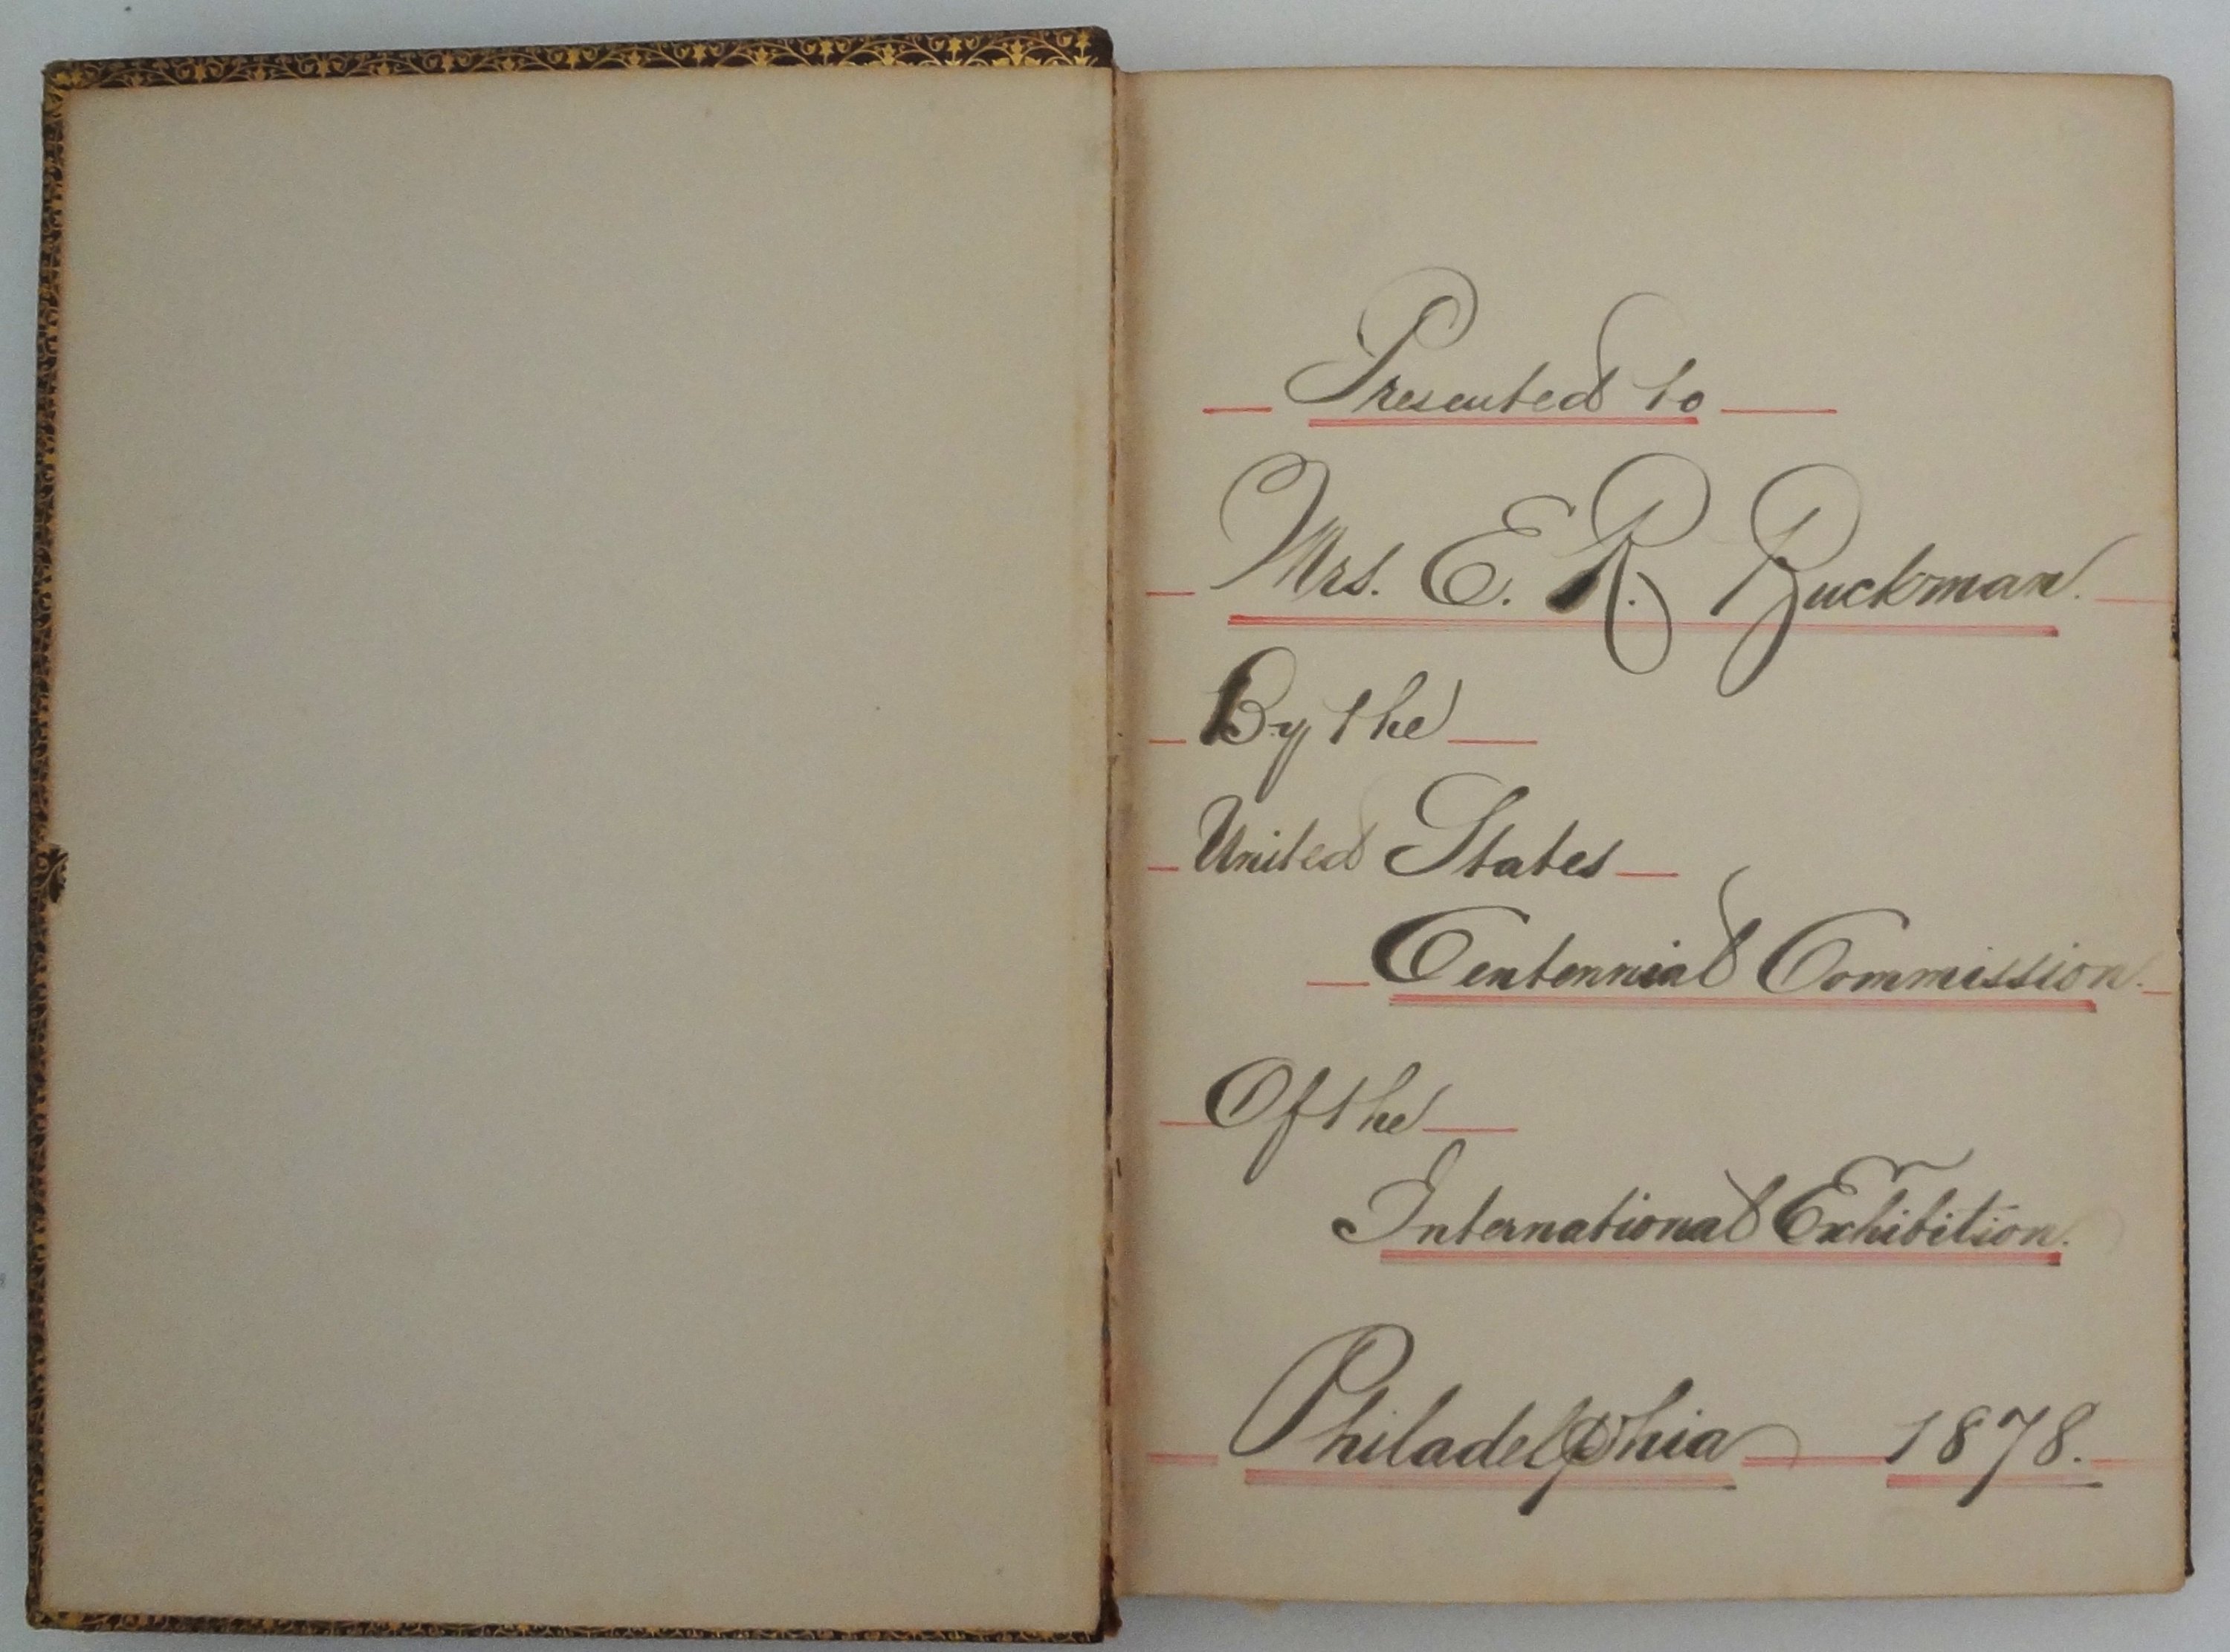 Presented to
Mrs. E. R. Buckman.
By the
United States
Centennial Commission.
Of the
International Exhibition.
Philadelphia 1878.